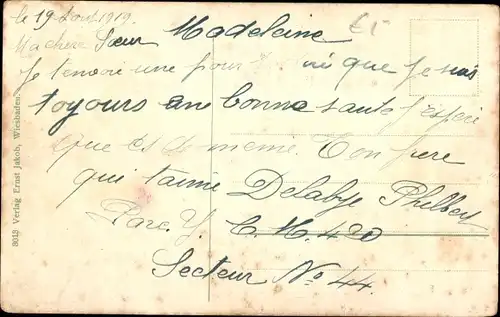 le 19 Aout 1919.
Ma chere Sœur Madeleine
Je t'envoie une que je suis
toujours en bonne sante j'espère
que de meme. Ton frere
qui t'aime Delabye
Parc. Y. C. M. 420
Secteur No 44.
8013 Verlag Ernst Jakob, Wiesbaden.